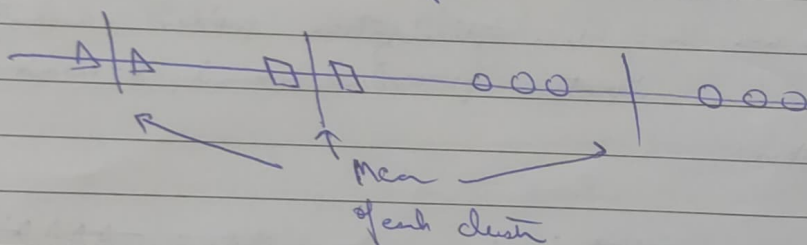 Mean
of each cluster